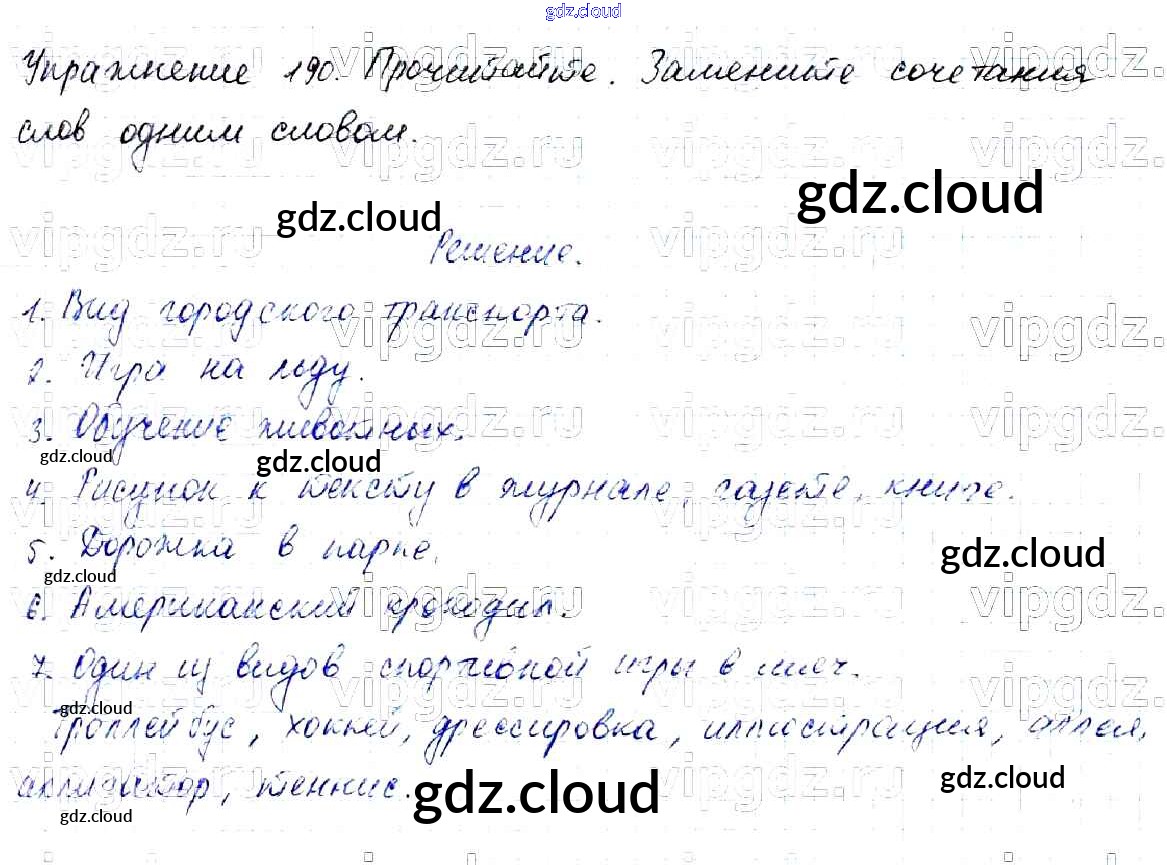 gdz.cloud
Упражнение 190. Прочитайте. Замените сочетания
слов одним словом.
gdz.cloud
gdz.cloud
Решение.
1. Вид городского транспорта.
2. Игра на льду.
3. Обучение животных.
gdz.cloud
gdz.cloud
4. Рисунок к тексту в журнале, газете, книге.
5. Дорожка в парке.
gdz.cloud
gdz.cloud
6. Американский крокодил.
7. Один из видов спортивной игры в мяч.
gdz.cloud
Троллейбус, хоккей, дрессировка, иллюстрация, аллея,
аллигатор, теннис.
gdz.cloud
gdz.cloud
gdz.cloud
vipgdz.ru